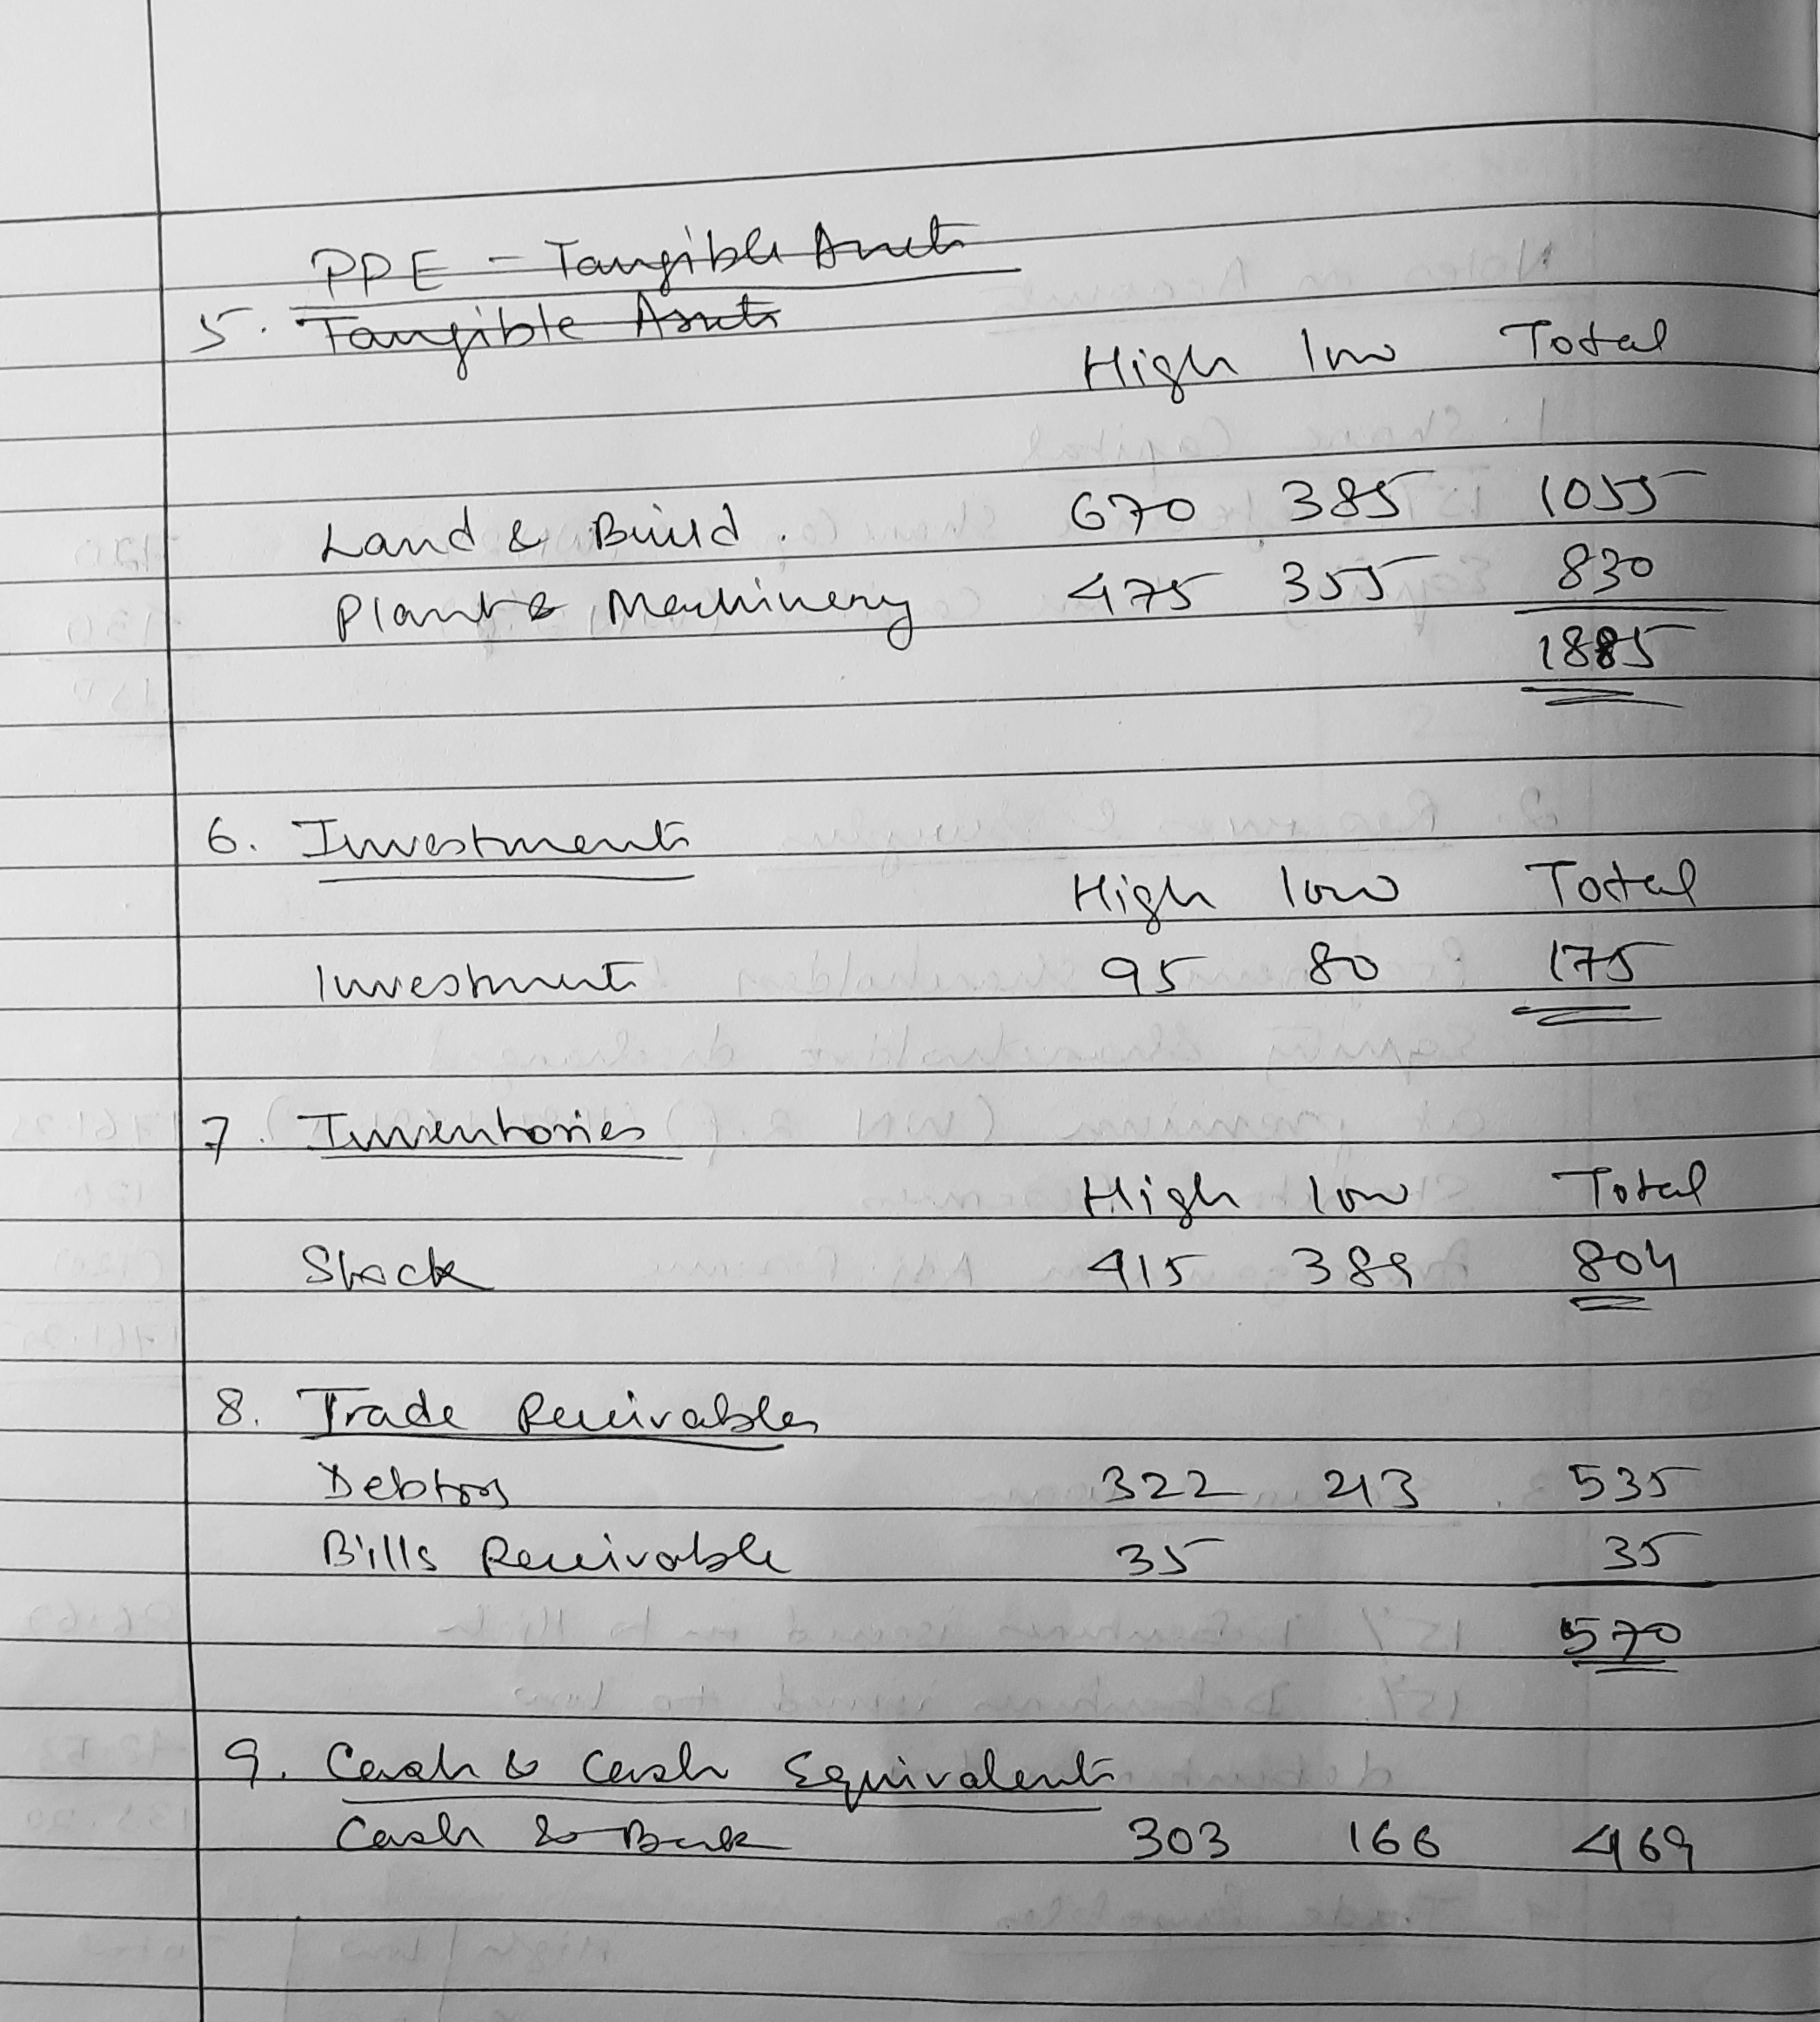 PPE - Tangible Assets
5. Tangible Assets
High low Total
Land & Build. 670 385 1055
Plant & Machinery 475 355 830
1885
6. Investments
High low Total
Investments 95 80 175
7. Inventories
High low Total
Stock 415 389 804
8. Trade Receivables
Debtors 322 213 535
Bills Receivable 35 35
570
9. Cash & Cash Equivalents
Cash & Bank 303 166 469